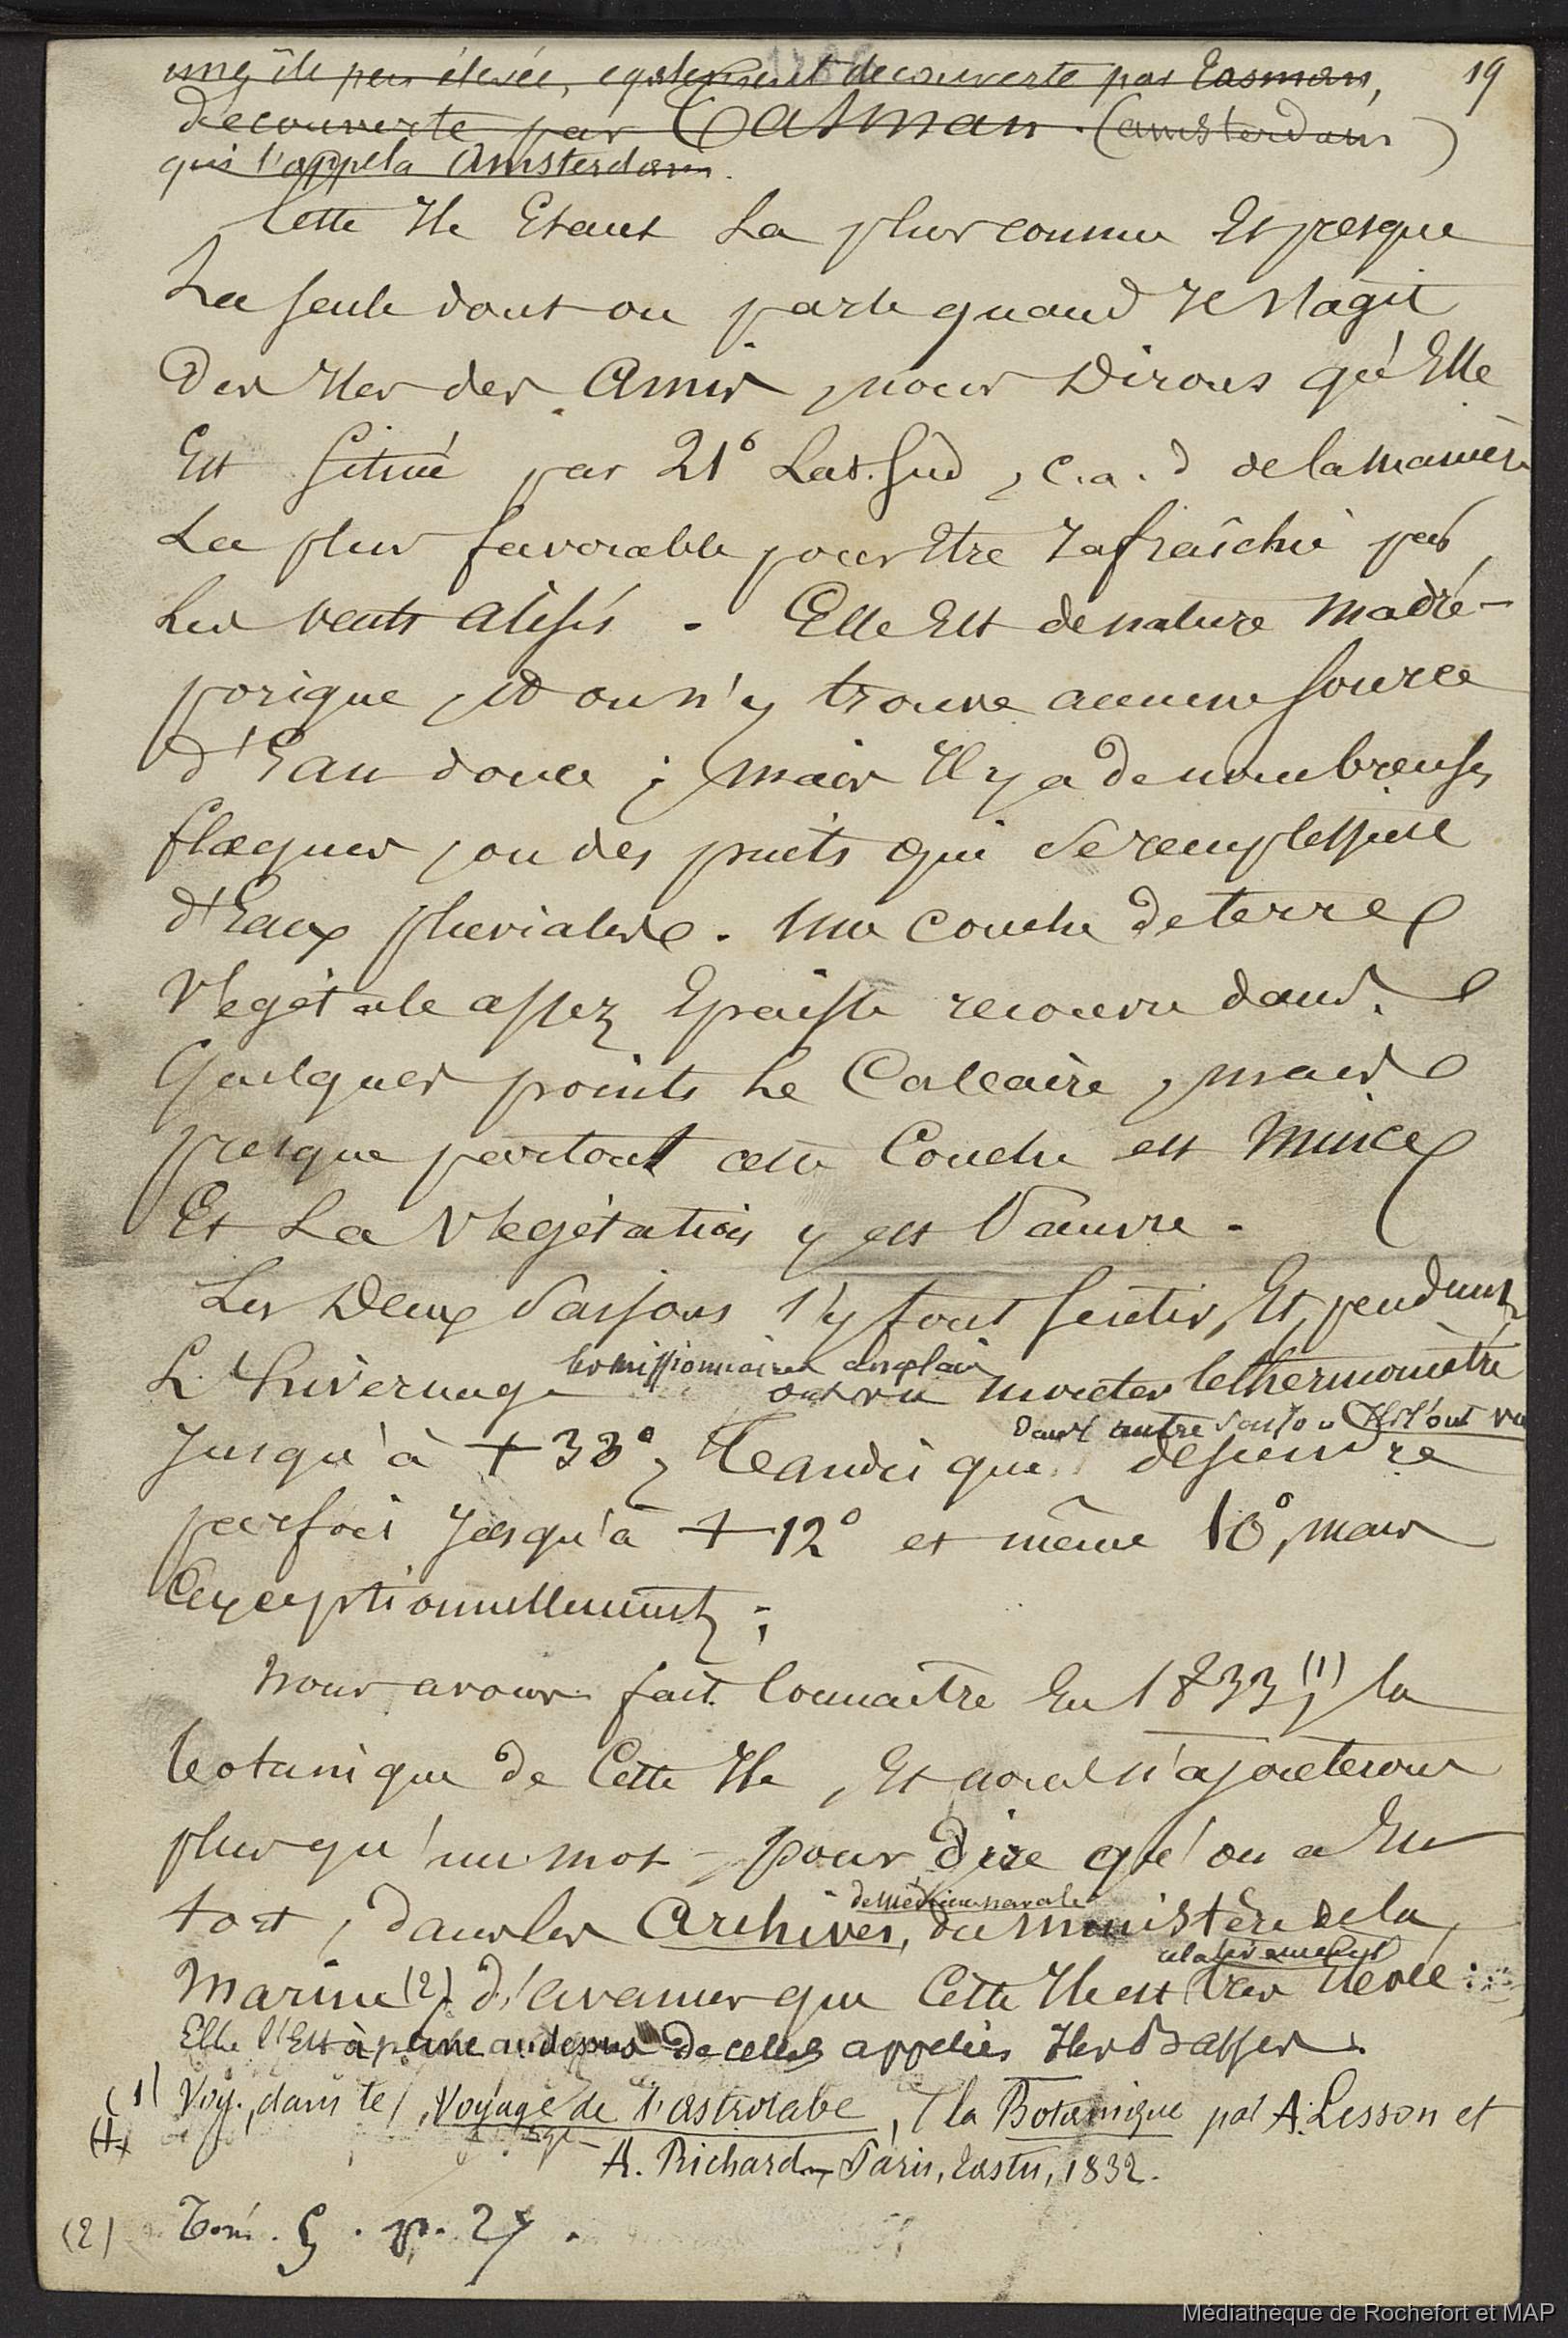 19
une île peu élevée, egalement decouverte par Tasman,
decouverte par Tasman. (amsterdam)
qui l'appela Amsterdam.
Cette Ile Etant La plus connue Et presque
La seule dont on parle quand Il s'agit
Des Iles des Amis, nous Dirons qu'Elle
Est située par 21° Lat. Sud, c.a.d de la manière
La plus favorable pour Etre rafraîchie par
Les vents alisés. Elle Est de nature madré-
porique, et on n'y trouve aucune source
d'Eau douce ; mais Il y a de nombreuses
flaques, ou des puits qui se remplissent
d'Eaux pluviales. Une couche de terre
Végétale assez Epaisse recouvre dans
Quelques points Le Calcaire, mais
presque partout cette Couche est mince
Et La Végétation y est Pauvre.
Les Deux Saisons s'y font sentir, Et, pendant
les missionnaires anglais
L'hivernage ont vu monter le thermomètre
dans l'autre saison Ils l'ont vu
Jusqu'à + 33°, Tandis que descendre
parfois Jusqu'à + 12° et même 10°, mais
Exceptionnellement ;
Nous avons fait Connaître En 1833 (1), la
botanique de Cette Ile, Et nous n'ajouterons
plus qu'un mot, pour Dire qu'on a Eu
de Médecine navale
tort, dans les Archives, du ministère de la
relativement
Marine (2), d'avancer que Cette Ile est très élevée :
Elle l'Est à peine au dessus de celles appelées Iles Basses.
(1) Voy., dans le Voyage de l'astrolabe, la Botanique par A. Lesson et
A. Richard, Paris, Tastu, 1832.
(2) Tom. 5. p. 27.
Médiathèque de Rochefort et MAP